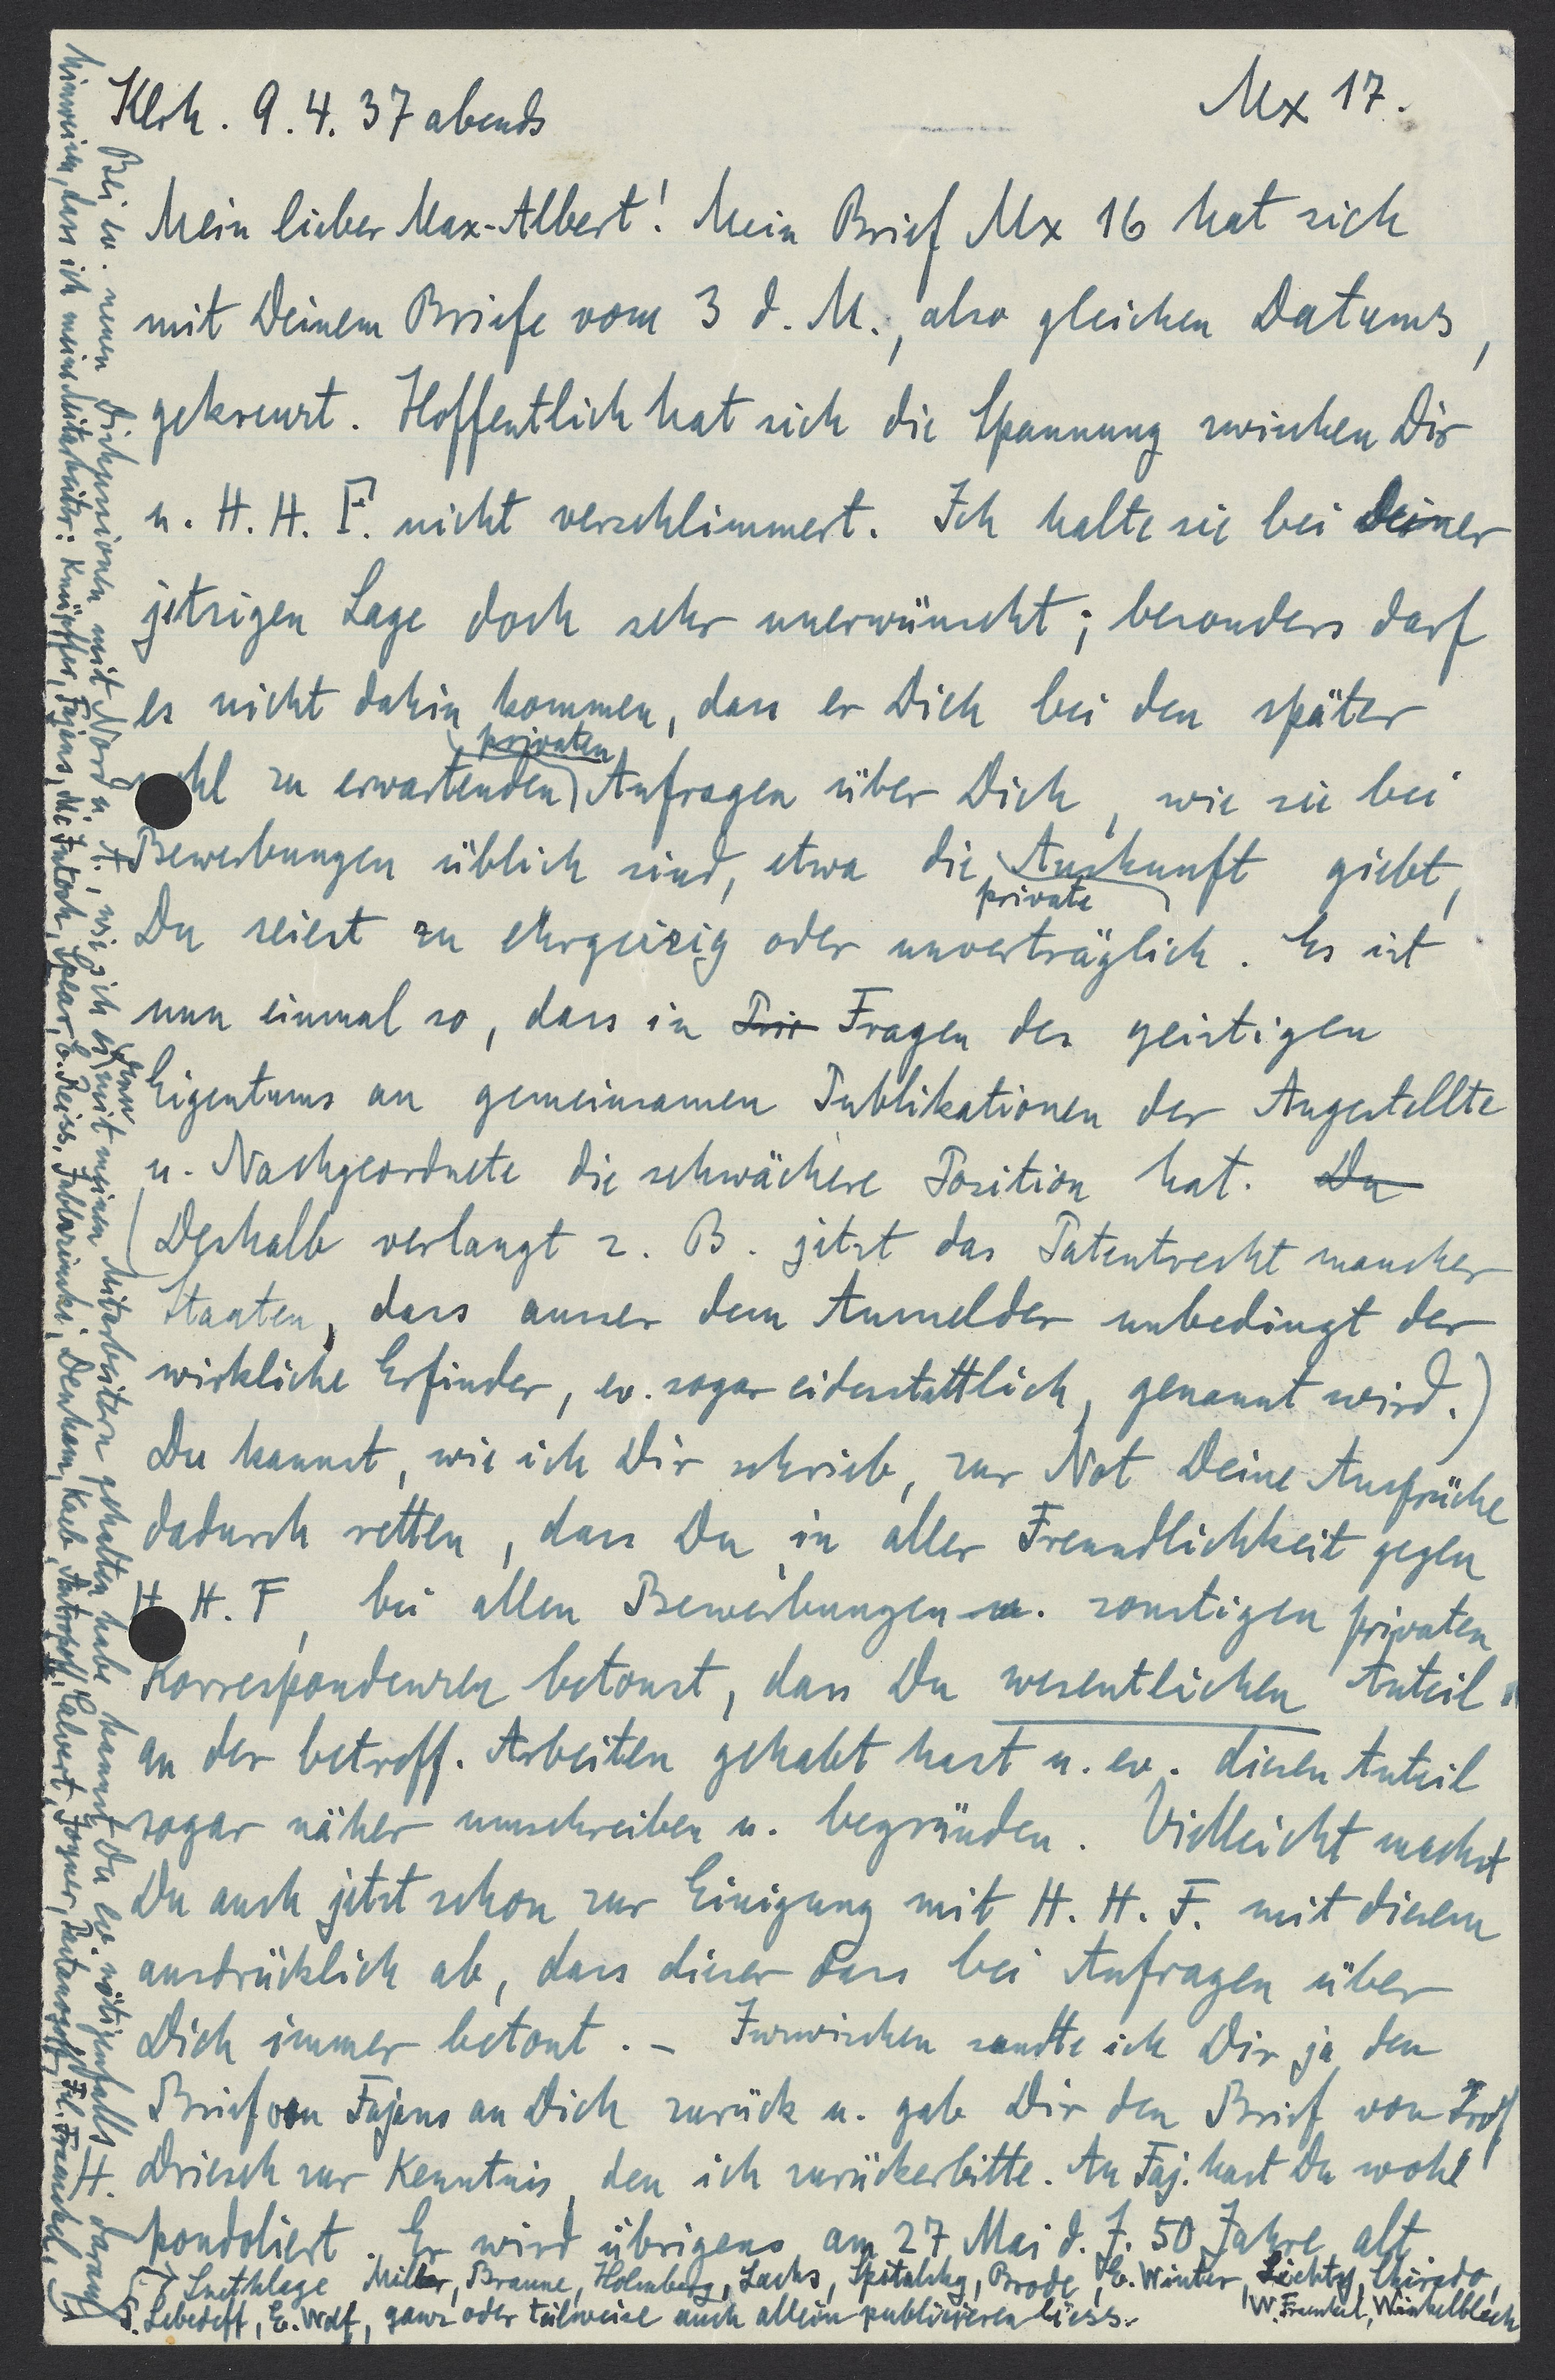 Klrh. 9.4.37 abends
Mx 17.
Mein lieber Max-Albert! Mein Brief Mx 16 hat sich
mit Deinem Briefe vom 3 d. M., also gleichen Datums,
gekreuzt. Hoffentlich hat sich die Spannung zwischen Dir
u. H. H. F. nicht verschlimmert. Ich halte sie bei Deiner
jetzigen Lage doch sehr unerwünscht; besonders darf
es nicht dahin kommen, dass er Dich bei den später
wohl zu erwartenden privaten Anfragen über Dich, wie sie bei
Bewerbungen üblich sind, etwa die private Auskunft giebt,
Du seiest zu ehrgeizig oder unverträglich. Es ist
nun einmal so, dass in Pri Fragen des geistigen
Eigentums an gemeinsamen Publikationen der Angestellte
u. Nachgeordnete die schwächere Position hat. Du
(Deshalb verlangt z. B. jetzt das Patentrecht mancher
Staaten, dass ausser dem Anmelder unbedingt der
wirkliche Erfinder, ev. sogar eidesstattlich, genannt wird.)
Du kannst, wie ich Dir schrieb, zur Not Deine Ansprüche
dadurch retten, dass Du in aller Freundlichkeit gegen
H. H. F, bei allen Bewerbungen u. sonstigen privaten
Korrespondenzen betonst, dass Du wesentlichen Anteil
an der betreff. Arbeiten gehabt hast u. ev. diesen Anteil
sogar näher umschreiben u. begründen. Vielleicht machst
Du auch jetzt schon zur Einigung mit H. H. F. mit diesem
ausdrücklich ab, dass dieser dass bei Anfragen über
Dich immer betont. – Inzwischen sandte ich Dir ja den
Brief von Fajans an Dich zurück u. gab Dir den Brief von Prof
Driesch zur Kenntnis, den ich zurückerbitte. An Faj. hast Du wohl
kondoliert. Er wird übrigens am 27 Mai d. J. 50 Jahre alt
Bei ev. neuen Diskussionen mit Nord u. F., wie ich es mit meinen Mitarbeitern gehalten habe kannst Du ev. nötigenfalls H. darauf
hinweisen, dass ich meine Mitarbeiter: Knüpffer, Fajans, Mc Intosh, Spear, E. Reiss, Jablczinski, Denham, Kaeb, Antropoff, Calvert, Joyner, Pestanogoff, Fl. Fraenckel,
Snethlage Miller, Braune, Holmberg, Sachs, Spitalsky, Brode, E. Winter, Lichty, Chirado,
W. Fraenkel, Winkelblech
Lebedeff, E. Wolf, ganz oder teilweise auch allein publicieren liess.